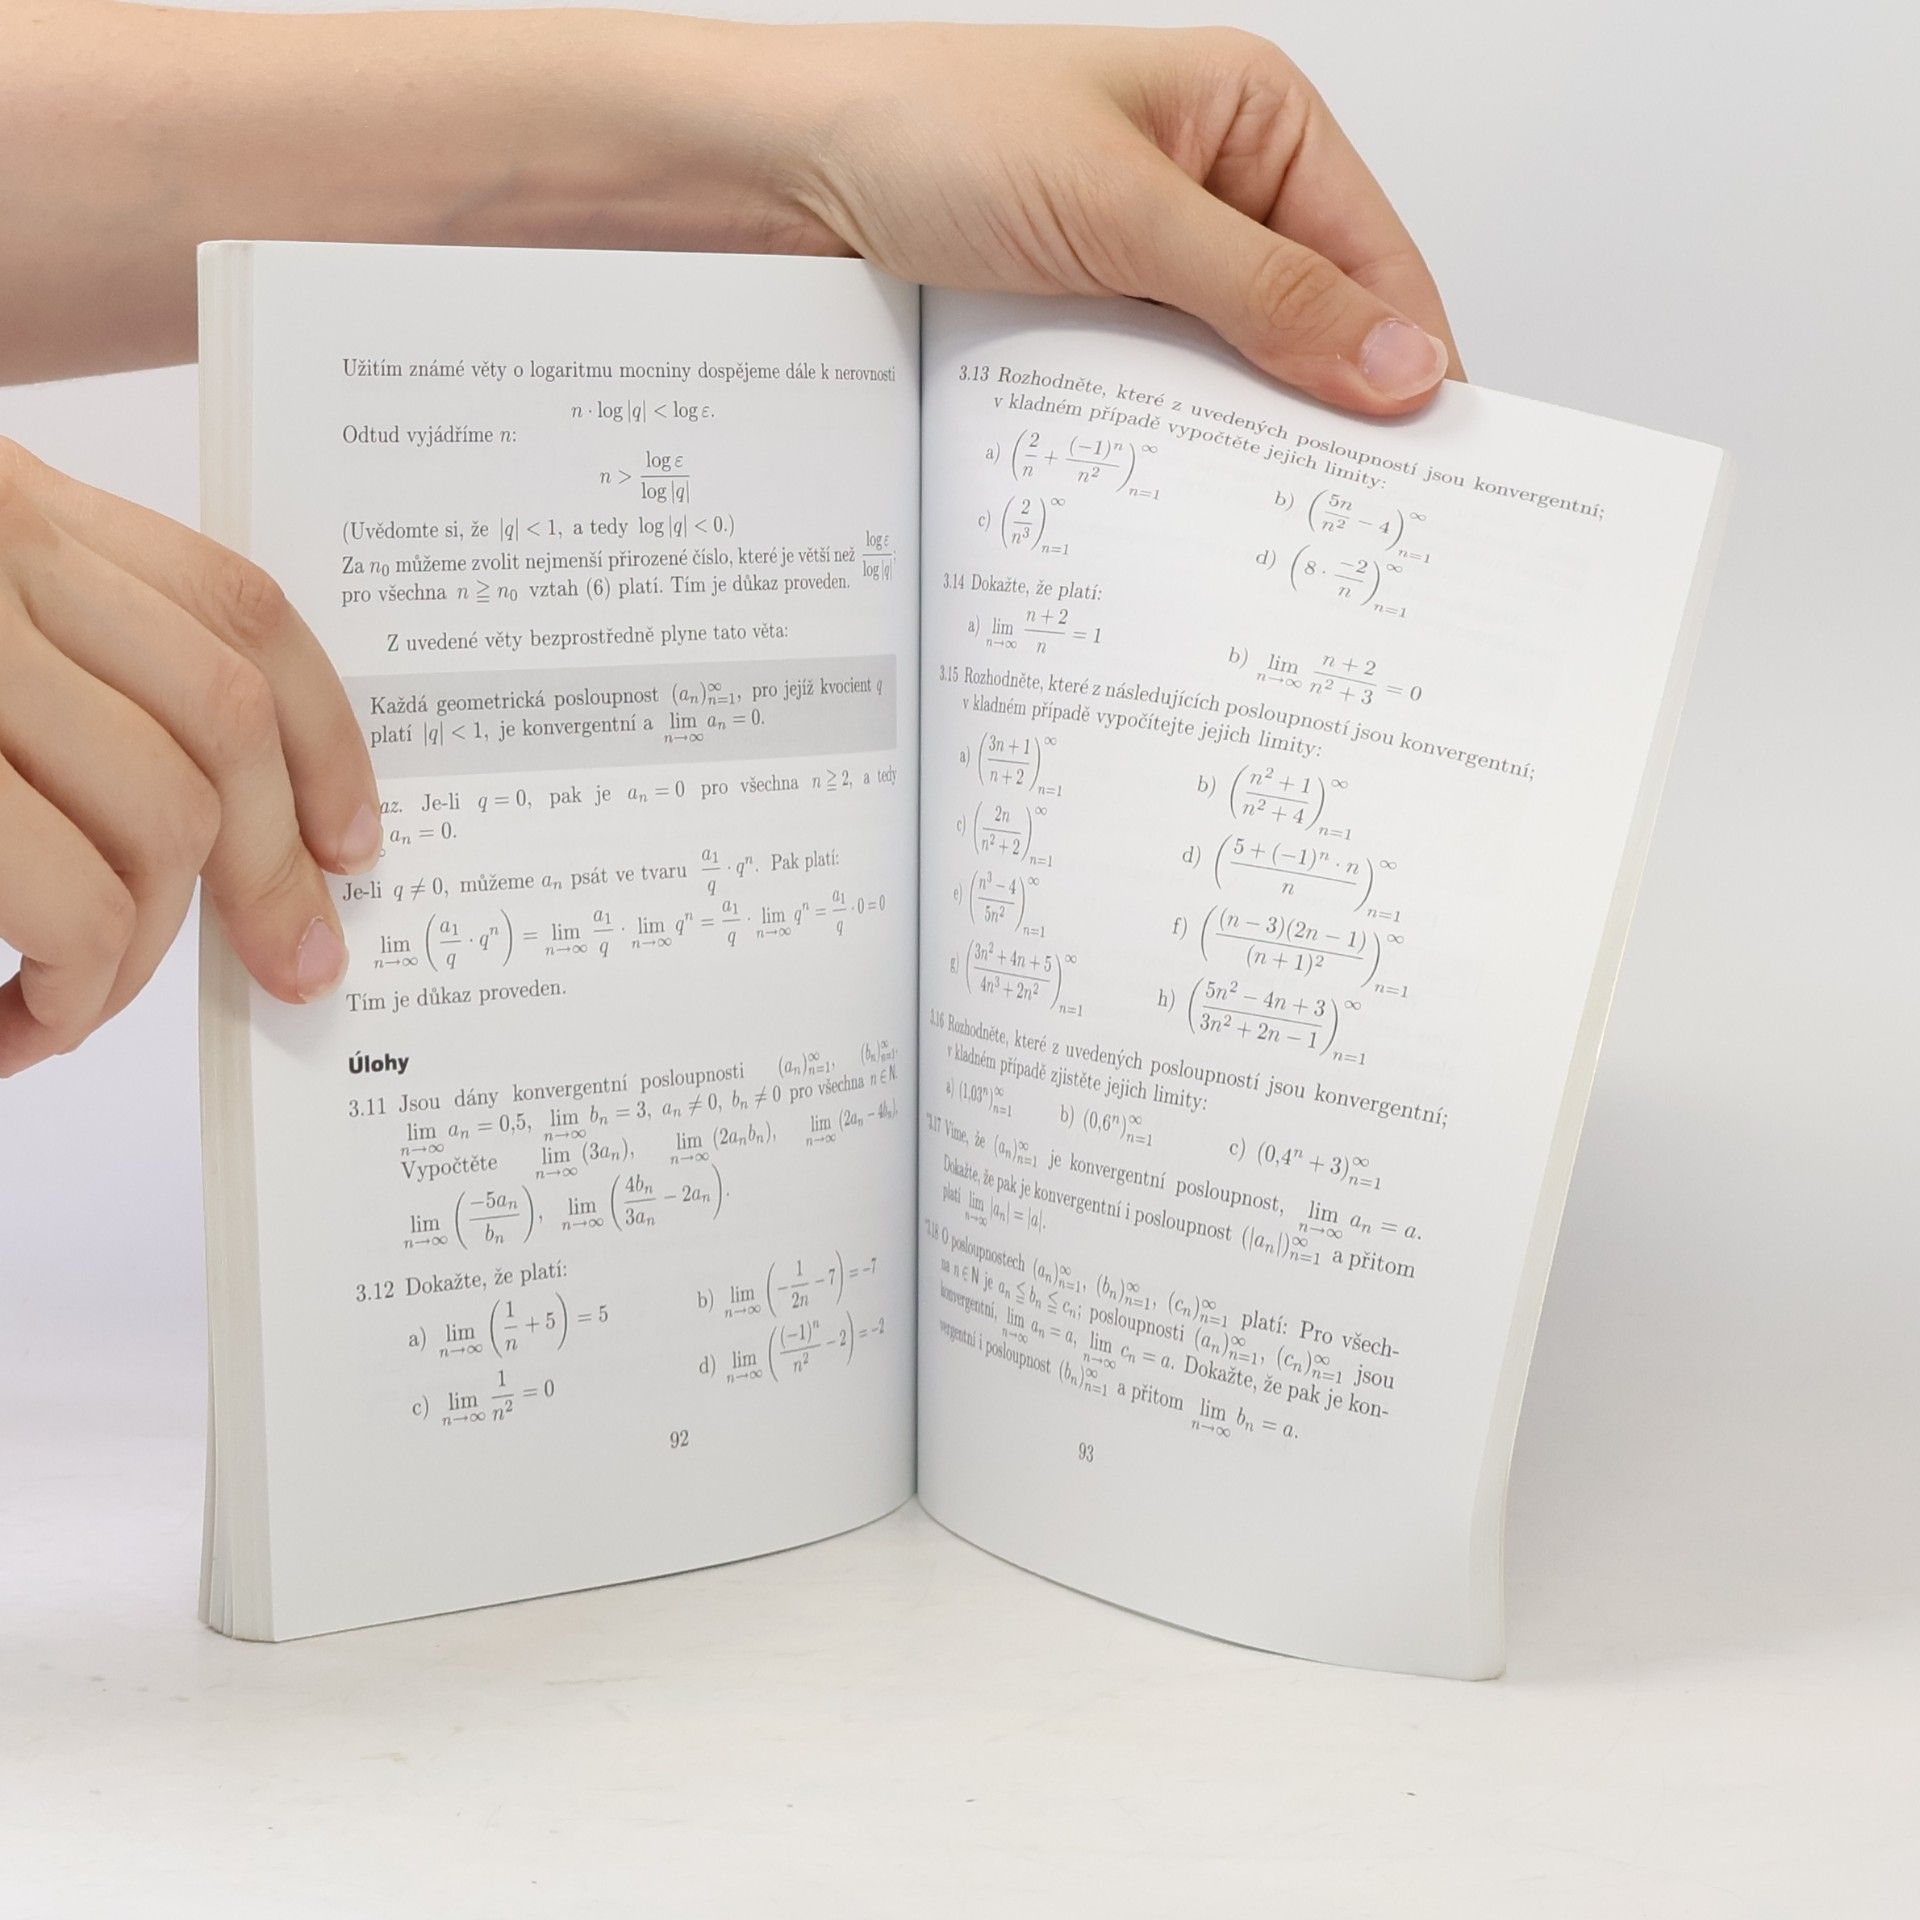 Užitím známé věty o logaritmu mocniny dospějeme dále k nerovnosti
n · log |q| < log ε.
Odtud vyjádříme n:
n > log ε / log |q|
(Uvědomte si, že |q| < 1, a tedy log |q| < 0.)
Za n₀ můžeme zvolit nejmenší přirozené číslo, které je větší než log ε / log |q|;
pro všechna n ≧ n₀ vztah (6) platí. Tím je důkaz proveden.
Z uvedené věty bezprostředně plyne tato věta:
Každá geometrická posloupnost (aₙ)ₙ₌₁^∞, pro jejíž kvocient q
platí |q| < 1, je konvergentní a lim_{n→∞} aₙ = 0.
az. Je-li q = 0, pak je aₙ = 0 pro všechna n ≧ 2, a tedy
aₙ = 0.
Je-li q ≠ 0, můžeme aₙ psát ve tvaru a₁/q · qⁿ. Pak platí:
lim_{n→∞} (a₁/q · qⁿ) = lim_{n→∞} a₁/q · lim_{n→∞} qⁿ = a₁/q · lim_{n→∞} qⁿ = a₁/q · 0 = 0
Tím je důkaz proveden.
Úlohy
3.11 Jsou dány konvergentní posloupnosti (aₙ)ₙ₌₁^∞, (bₙ)ₙ₌₁^∞,
lim_{n→∞} aₙ = 0,5, lim_{n→∞} bₙ = 3, aₙ ≠ 0, bₙ ≠ 0 pro všechna n ∈ N.
Vypočtěte lim_{n→∞} (3aₙ), lim_{n→∞} (2aₙbₙ), lim_{n→∞} (2aₙ − 4bₙ),
lim_{n→∞} (−5aₙ / bₙ), lim_{n→∞} (4bₙ / 3aₙ − 2aₙ).
3.12 Dokažte, že platí:
a) lim_{n→∞} (1/n + 5) = 5 b) lim_{n→∞} (−1/2n − 7) = −7
c) lim_{n→∞} 1/n² = 0 d) lim_{n→∞} ((−1)ⁿ/n² − 2) = −2
92
3.13 Rozhodněte, které z uvedených posloupností jsou konvergentní;
v kladném případě vypočtěte jejich limity:
a) (2/n + (−1)ⁿ/n²)ₙ₌₁^∞ b) (5n/n² − 4)ₙ₌₁^∞
c) (2/n³)ₙ₌₁^∞ d) (8 · −2/n)ₙ₌₁^∞
3.14 Dokažte, že platí:
a) lim_{n→∞} (n + 2)/n = 1 b) lim_{n→∞} (n + 2)/(n² + 3) = 0
3.15 Rozhodněte, které z následujících posloupností jsou konvergentní;
v kladném případě vypočítejte jejich limity:
a) ((3n + 1)/(n + 2))ₙ₌₁^∞ b) ((n² + 1)/(n² + 4))ₙ₌₁^∞
c) (2n/(n² + 2))ₙ₌₁^∞ d) ((5 + (−1)ⁿ · n)/n)ₙ₌₁^∞
e) ((n³ − 4)/5n²)ₙ₌₁^∞ f) ((n − 3)(2n − 1)/(n + 1)²)ₙ₌₁^∞
g) ((3n² + 4n + 5)/(4n³ + 2n²))ₙ₌₁^∞ h) ((5n² − 4n + 3)/(3n² + 2n − 1))ₙ₌₁^∞
3.16 Rozhodněte, které z uvedených posloupností jsou konvergentní;
v kladném případě zjistěte jejich limity:
a) (1,03ⁿ)ₙ₌₁^∞ b) (0,6ⁿ)ₙ₌₁^∞ c) (0,4ⁿ + 3)ₙ₌₁^∞
*3.17 Víme, že (aₙ)ₙ₌₁^∞ je konvergentní posloupnost, lim_{n→∞} aₙ = a.
Dokažte, že pak je konvergentní i posloupnost (|aₙ|)ₙ₌₁^∞ a přitom
platí lim_{n→∞} |aₙ| = |a|.
*3.18 O posloupnostech (aₙ)ₙ₌₁^∞, (bₙ)ₙ₌₁^∞, (cₙ)ₙ₌₁^∞ platí: Pro všech-
na n ∈ N je aₙ ≦ bₙ ≦ cₙ; posloupnosti (aₙ)ₙ₌₁^∞, (cₙ)ₙ₌₁^∞ jsou
konvergentní, lim_{n→∞} aₙ = a, lim_{n→∞} cₙ = a. Dokažte, že pak je kon-
vergentní i posloupnost (bₙ)ₙ₌₁^∞ a přitom lim_{n→∞} bₙ = a.
93